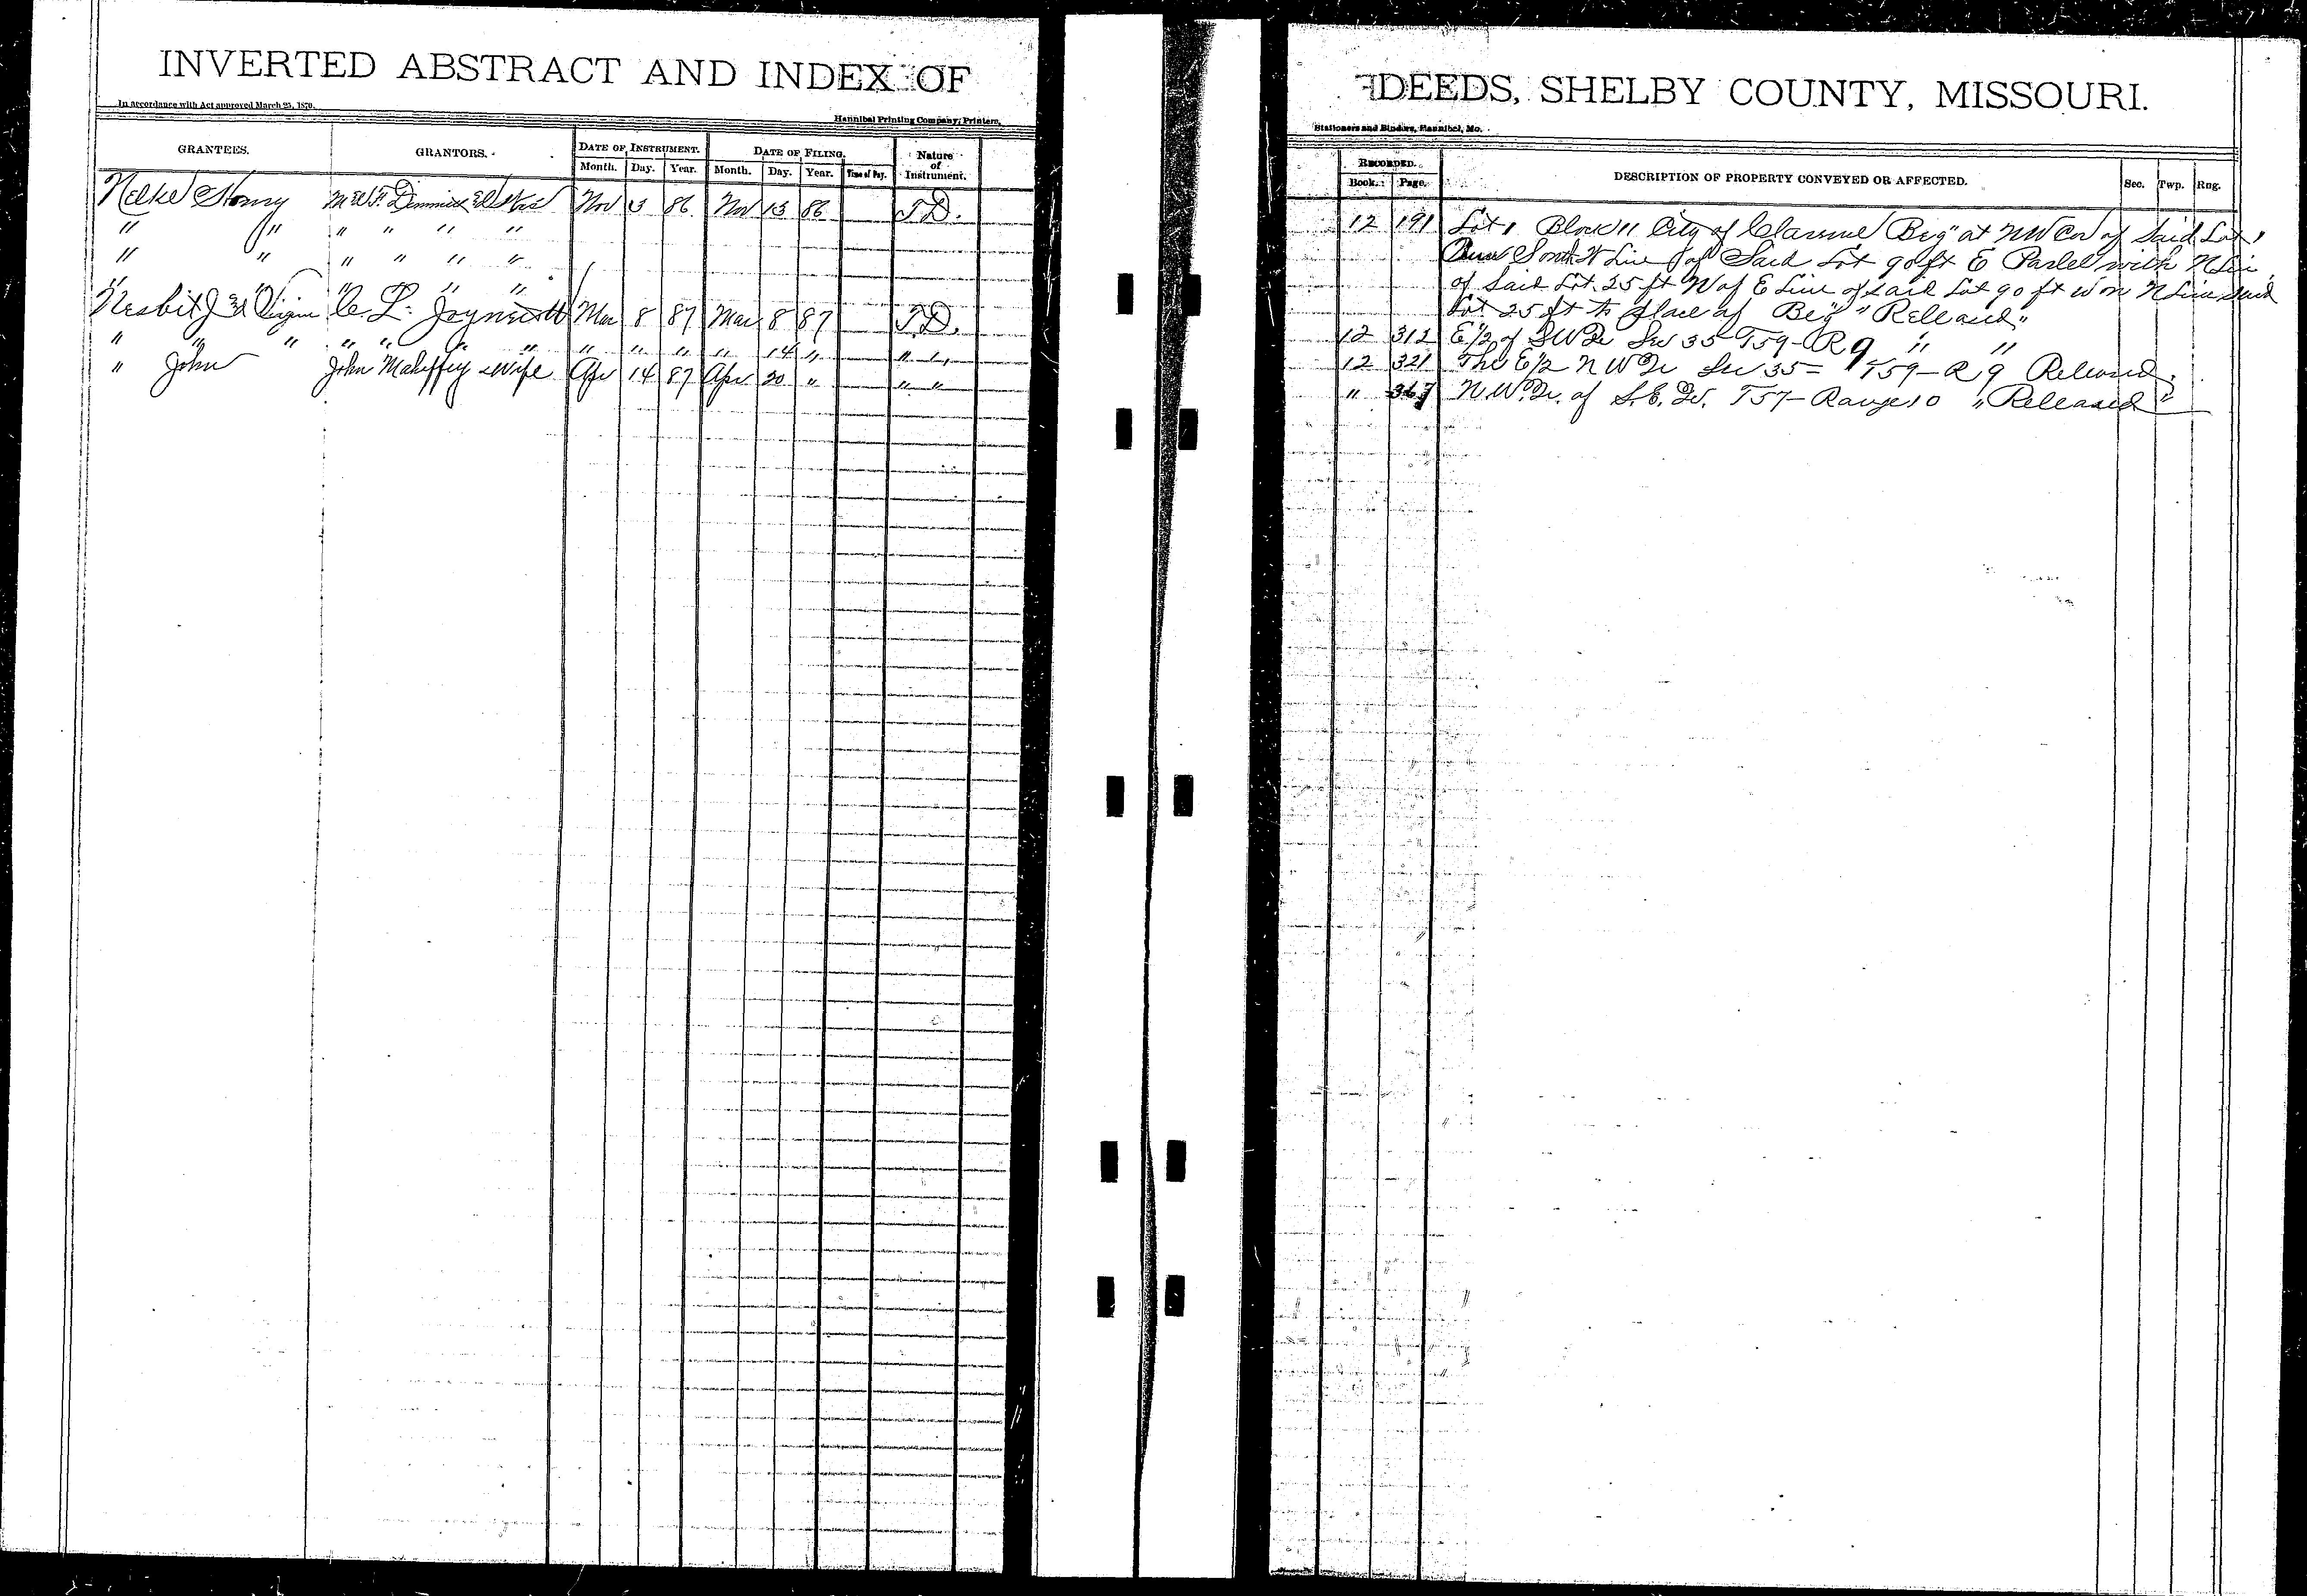 INVERTED ABSTRACT AND INDEX OF
In accordance with Act approved March 25, 1870.
Hannibal Printing Company, Printers,
GRANTEES. GRANTORS. DATE OF INSTRUMENT. DATE OF FILING. Nature of Instrument.
Month. Day. Year. Month. Day. Year. Time of Day.
Nelke Henry Dimmick Nov 3 86 Nov 13 86 T.D.
" " " " " "
" " " " " "
" " " " " "
Nesbit J C. L. Mar 8 87 Mar 8 87 T.D.
" " " " " " " " " " " 14 " " "
" John John Mahiffey & Wife Apr 14 87 Apr 20 " " "
DEEDS, SHELBY COUNTY, MISSOURI.
Stationers and Binders, Hannibal, Mo.
RECORDED. DESCRIPTION OF PROPERTY CONVEYED OR AFFECTED. Sec. Twp. Rng.
Book. Page.
12 191 Lot 1 Block 11 City of Clarence Beg" at NW Cor of Said Lot 1
South W Line of Said Lot 90 ft E Parlel with N Line
of Said Lot 25 ft N of E Line of said Lot 90 ft W on N Line said
Lot 25 ft to place of Beg" "Released"
12 312 E 1/2 of SW Qr Sec 35 - T59 - R 9 " "
12 321 The E 1/2 N W Qr Sec 35 = T59 - R 9 Released
" 367 N.W. Qr. of S.E. Qr. T57 - Range 10 "Released"